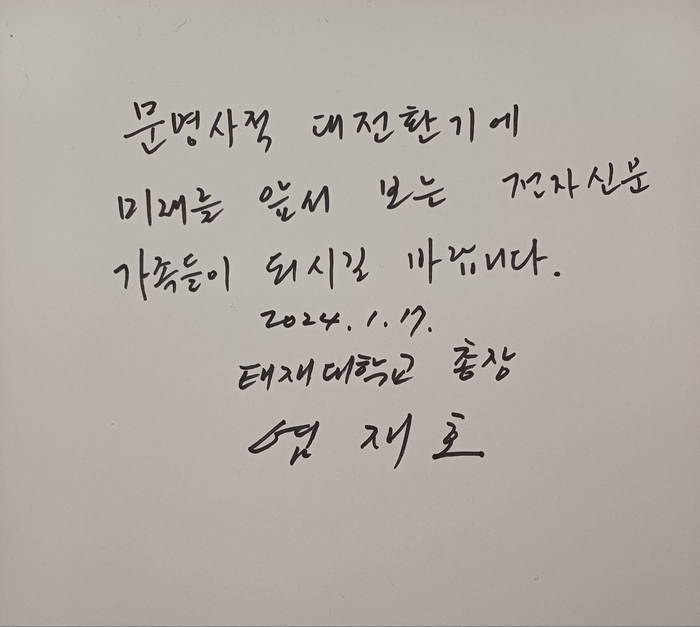 문명사적 대전환기에
미래를 앞서 보는 전자신문
가족들이 되시길 바랍니다.
2024. 1. 17.
태재대학교 총장
염재호